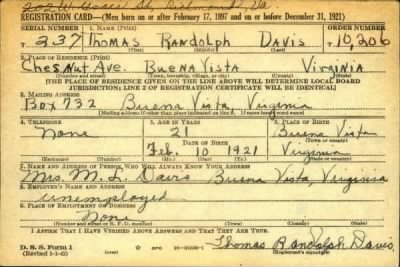 REGISTRATION CARD—(Men born on or after February 17, 1897 and on or before December 31, 1921)
SERIAL NUMBER 1. NAME (Print) ORDER NUMBER
T 237 Thomas Randolph Davis T 10,206
(First) (Middle) (Last)
2. PLACE OF RESIDENCE (Print)
Chesnut Ave. Buena Vista Virginia
(Number and street) (Town, township, village, or city) (County) (State)
[THE PLACE OF RESIDENCE GIVEN ON THE LINE ABOVE WILL DETERMINE LOCAL BOARD
JURISDICTION; LINE 2 OF REGISTRATION CERTIFICATE WILL BE IDENTICAL]
3. MAILING ADDRESS
Box 732 Buena Vista Virginia
(Mailing address if other than place indicated on line 2. If same, insert word same)
4. TELEPHONE 5. AGE IN YEARS 6. PLACE OF BIRTH
None 21 Buena Vista
DATE OF BIRTH (Town or county)
Feb. 10 1921 Virginia
(Exchange) (Number) (Mo.) (Day) (Yr.) (State or country)
7. NAME AND ADDRESS OF PERSON WHO WILL ALWAYS KNOW YOUR ADDRESS
Mrs. M. L. Davis Buena Vista Virginia
8. EMPLOYER'S NAME AND ADDRESS
Unemployed
9. PLACE OF EMPLOYMENT OR BUSINESS
None
(Number and street or R. F. D. number) (Town) (County) (State)
I AFFIRM THAT I HAVE VERIFIED ABOVE ANSWERS AND THAT THEY ARE TRUE.
D. S. S. Form 1
(Revised 1-1-42) (over)
Thomas Randolph Davis
(Registrant's signature)